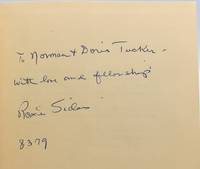 To Norman & Doris Tucker -
with love and fellowship
8379